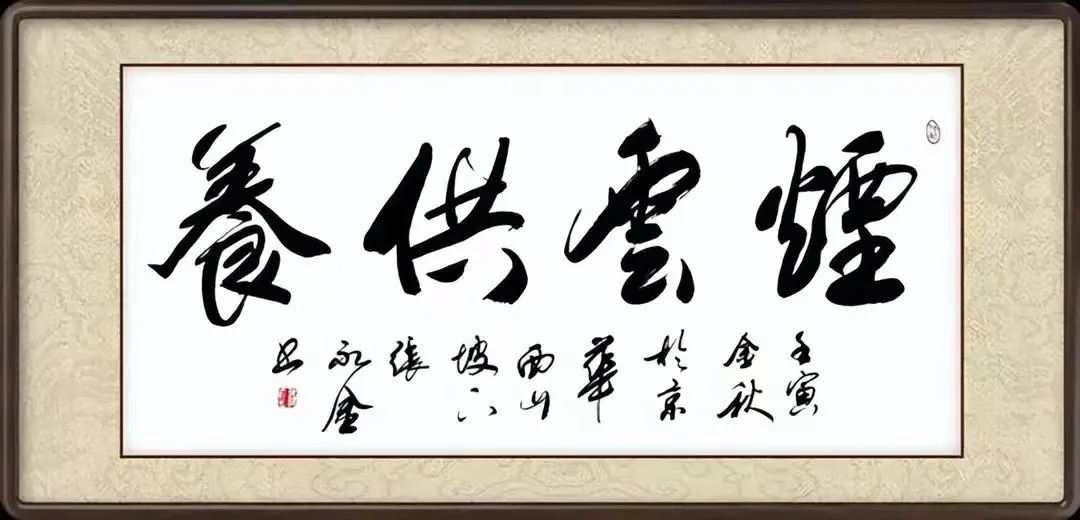 煙雲供養
壬寅
金秋
於京
華
西山
坡下
張
永金
书